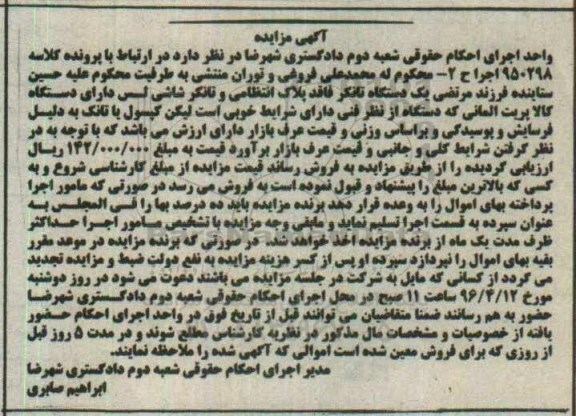 آگهی مزایده
واحد اجرای احکام حقوقی شعبه دوم دادگستری شهرضا در نظر دارد در ارتباط با پرونده کلاسه
۹۵۰۲۹۸ اجرا ح ۲- محکوم له محمدعلی فروغی و توران منتشی به طرفیت محکوم علیه حسین
ستاینده فرزند مرتضی یک دستگاه تانکر فاقد پلاک انتظامی و تانکر شاشی لسس دارای دستگاه
کالا پریت المانی که دستگاه از نظر فنی دارای شرایط خوبی است لیکن کپسول یا تانک به دلیل
فرسایش و پوسیدگی و براساس وزنی و قیمت عرف بازار دارای ارزش می باشد که با توجه به در
نظر گرفتن شرایط کلی و جانبی و قیمت عرف بازار برآورد قیمت به مبلغ ۱۴۲/۰۰۰/۰۰۰ ریال
ارزیابی گردیده را از طریق مزایده به فروش رساند قیمت مزایده از مبلغ کارشناسی شروع و به
کسی که بالاترین مبلغ را پیشنهاد و قبول نموده است به فروش می رسد در صورتی که مامور اجرا
پرداخته بهای اموال را به وعده قرار دهد برنده مزایده باید ده درصد بها را فی المجلس به
عنوان سپرده به قسمت اجرا تسلیم نماید و مابقی وجه مزایده با تشخیص مامور اجرا حداکثر
ظرف مدت یک ماه از برنده مزایده اخذ خواهد شد. در صورتی که برنده مزایده در موعد مقرر
بقیه بهای اموال را نپردازد سپرده او پس از کسر هزینه مزایده به نفع دولت ضبط و مزایده تجدید
می گردد از کسانی که مایل به شرکت در جلسه مزایده می باشند دعوت می شود در روز دوشنبه
مورخ ۹۶/۴/۱۲ ساعت ۱۱ صبح در محل اجرای احکام حقوقی شعبه دوم دادگستری شهرضا
حضور به هم رسانند ضمنا متقاضیان می توانند قبل از تاریخ فوق در واحد اجرای احکام حضور
یافته از خصوصیات و مشخصات مال مذکور در نظریه کارشناس مطلع شوند و در مدت ۵ روز قبل
از روزی که برای فروش معین شده است اموالی که آگهی شده را ملاحظه نمایند.
مدیر اجرای احکام حقوقی شعبه دوم دادگستری شهرضا
ابراهیم صابری